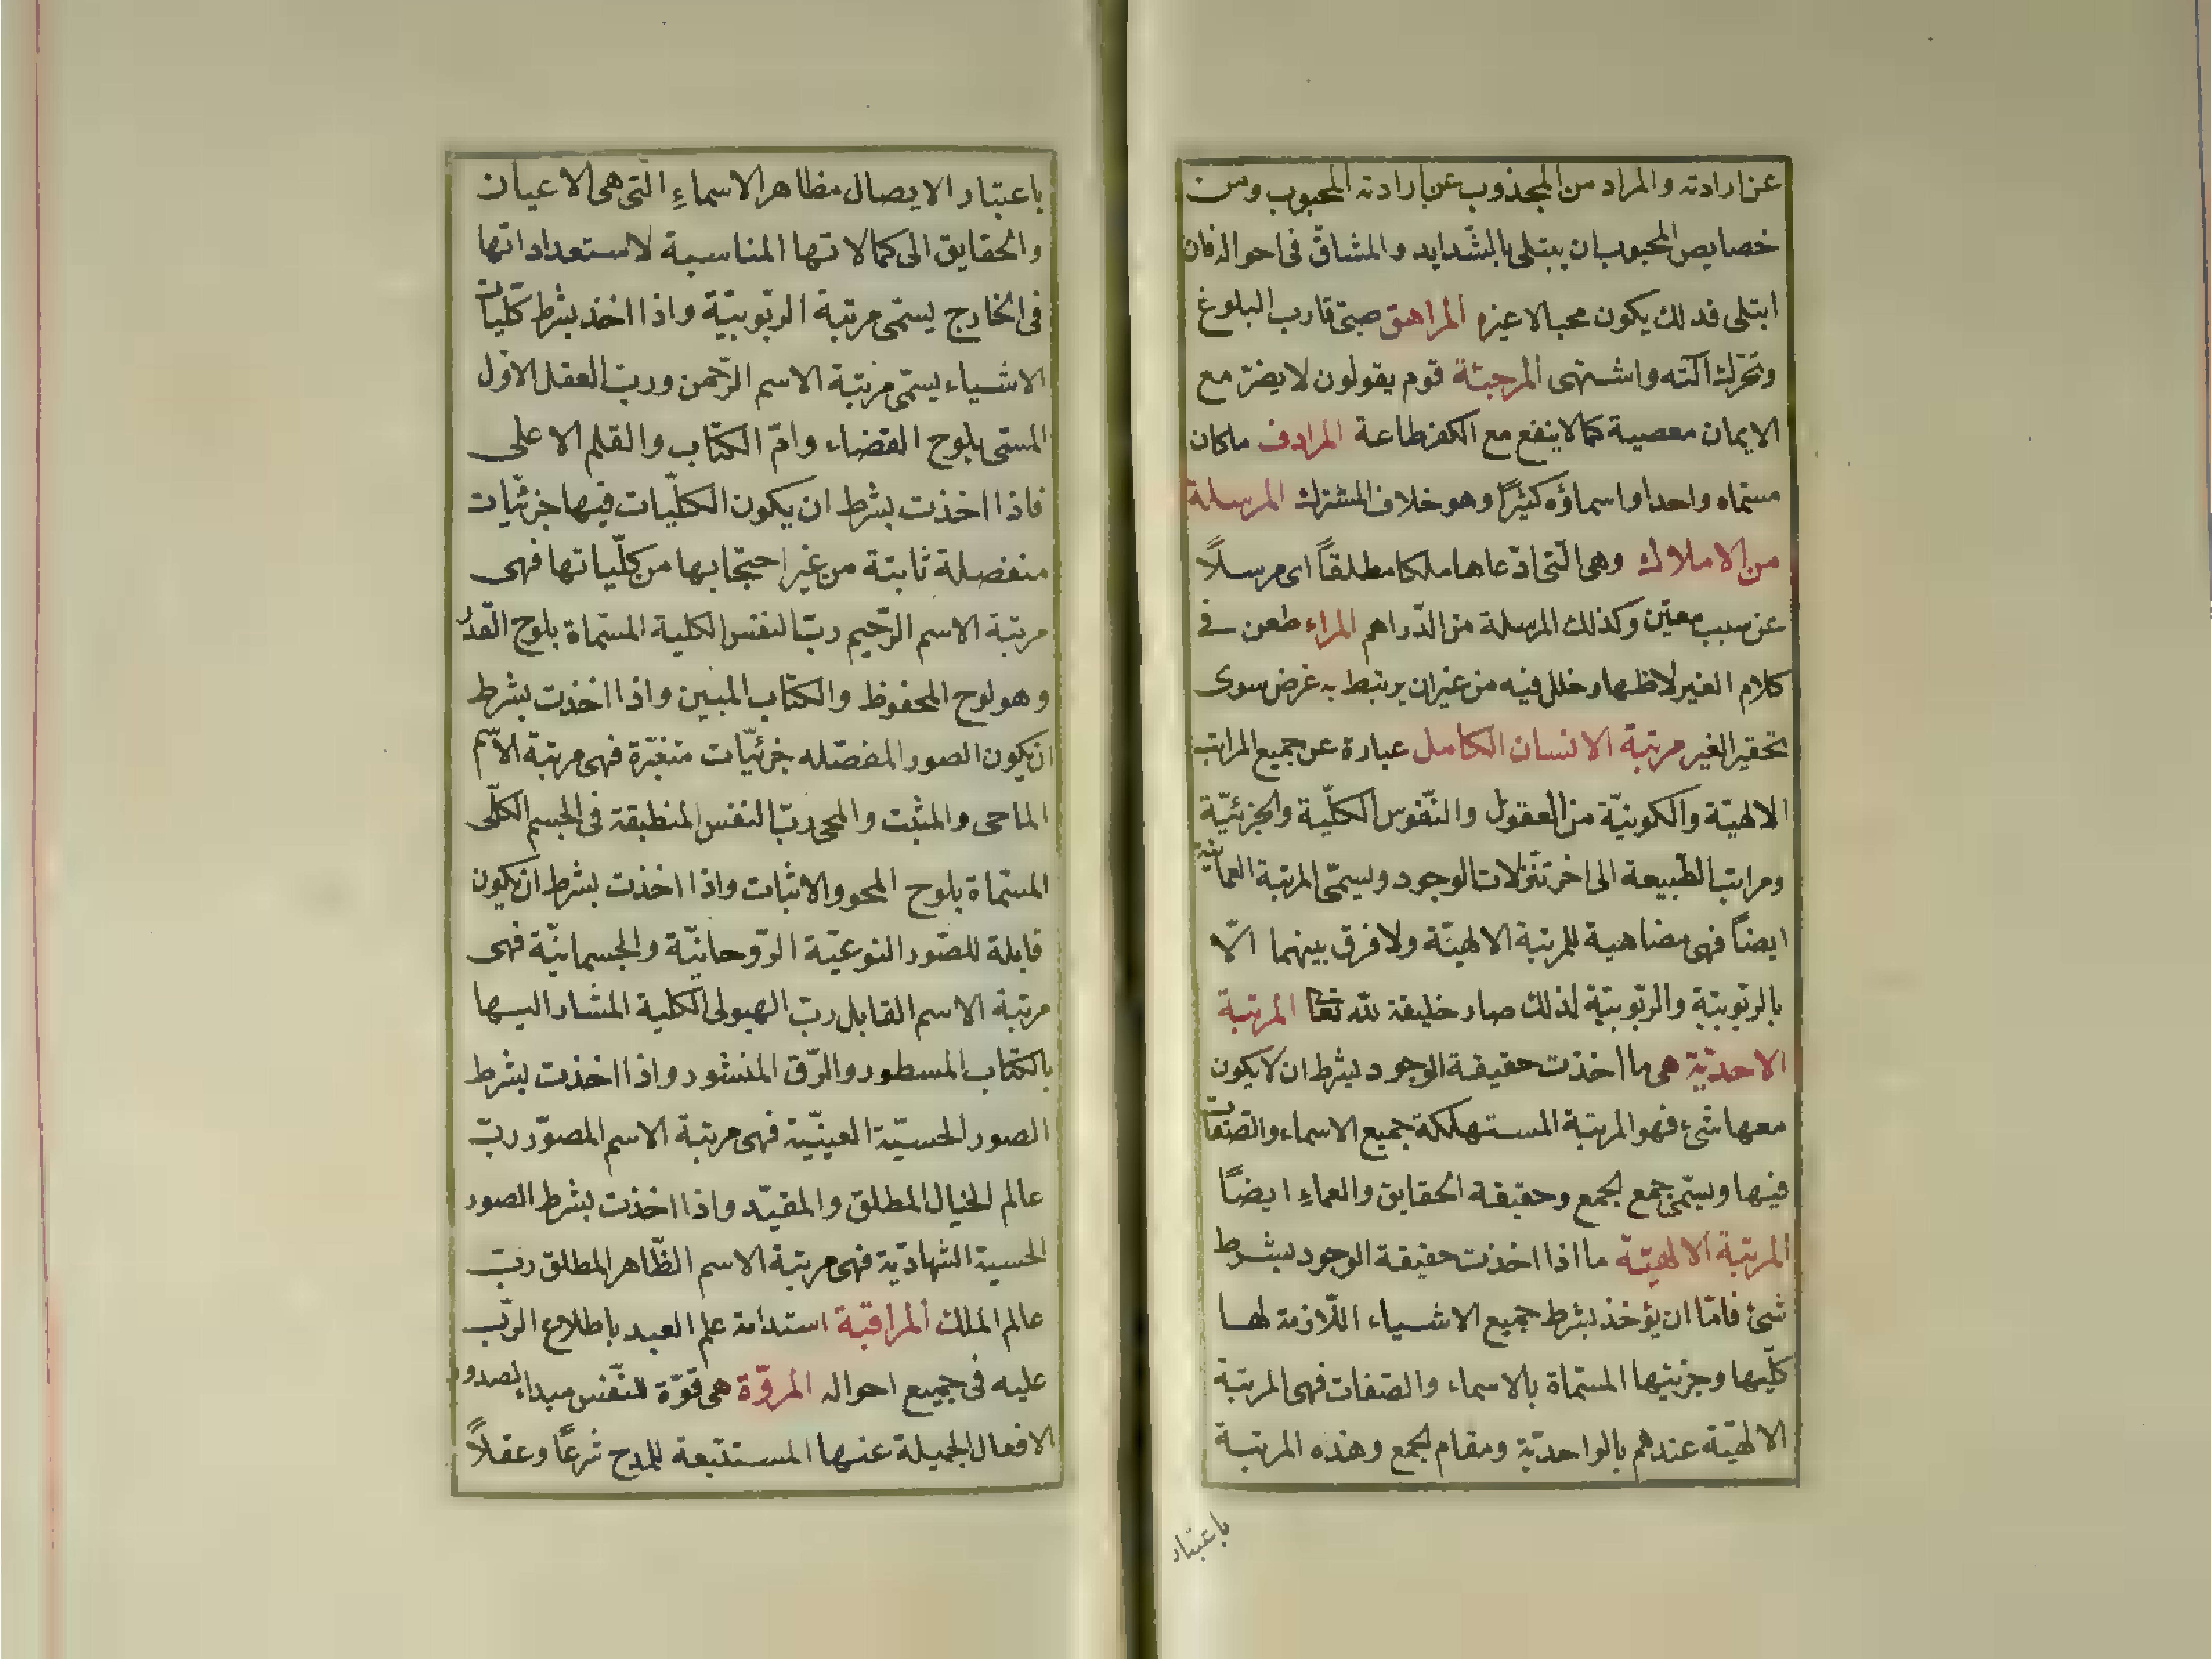 عن ارادته والمراد من المجذوب عن ارادته المحبوب ومن
خصايص المحبوب ان يبتلى بالشّدايد والمشاقّ فى احواله فان
ابتلى فدلك يكون محبا لا عيزه المراهق صبىّ قارب البلوغ
وتحرّكت آلته واشتهى المرجئة قوم يقولون لا يضرّ مع
الايمان معصية كما لا ينفع مع الكفر طاعة المرادف ماكان
مسمّاه واحدا واسماؤه كثيرًا وهو خلاف المشترك المرسلة
من الاملاك وهى الّتى ادّعاها ملكا مطلقاً اى مرسلًا
عن سبب معيّن وكذلك المرسلة من الدّراهم المراء طعن فى
كلام الغير لاظهار خلل فيه من غيران يرتبط به غرض سوى
تحقير الغير مرتبة الانسان الكامل عبارة عن جميع المراتب
الالهيّة والكونيّة من العقول والنّفوس الكلّية والجزئيّة
ومراتب الطّبيعة الى اخر تنزّلات الوجود ويسمّى المرتبة العمائية
ايضاً فهى مضاهية للمرتبة الالهيّة ولا فرق بينهما الّا
بالرّبوبيّة والرّبوبيّة لذلك صار خليفة للّه تعا المرتبة
الاحديّة هى ما اخذت حقيقة الوجود بشرط ان لا يكون
معها شىء فهو المرتبة المستهلكة جميع الاسماء والصّفات
فيها ويسمّى جمع الجمع وحقيقة الحقايق والعماء ايضًا
المرتبة الالهيّة ما اذا اخذت حقيقة الوجود بشرط
شئ فامّا ان يؤخذ بشرط جميع الاشياء اللّازمة لها
كلّيها وجزئيها المسمّاة بالاسماء والصّفات فهى المرتبة
الالهيّة عندهم بالواحديّة ومقام الجمع وهذه المرتبة
باعتبار
باعتبار الايصال مظاهر الاسماء الّتى هى الاعيان
والحقايق الى كمالاتها المناسبة لاستعداداتها
فى الخارج يسمّى مرتبة الرّبوبيّة واذا اخذ بشرط كلّيات
الاشياء يسمّى مرتبة الاسم الرّحمن وربّ العقل الاوّل
المسمّى بلوح القضاء وامّ الكتاب والقلم الاعلى
فاذا اخذت بشرط ان يكون الكلّيات فيها جزئيّات
منفصلة ثابتة من غير احتجابها من كلّياتها فهى
مرتبة الاسم الرّحيم ربّ النفس الكلية المسمّاة بلوح القدر
وهو لوح المحفوظ والكتاب المبين واذا اخذت بشرط
ان يكون الصور المفصّله جزئيّات متغيّرة فهى مرتبة الاسم
الماحى والمثبت والمحى ربّ النفس المنطبقة فى الجسم الكلّى
المسمّاة بلوح المحو والاثبات واذا اخذت بشرط ان يكون
قابلة للصّور النوعيّة الرّوحانيّة والجسمانيّة فهى
مرتبة الاسم القابل ربّ الهيولى الكلية المشار اليها
بالكتاب المسطور والرّق المنشور واذا اخذت بشرط
الصور الحسيّة العينيّة فهى مرتبة الاسم المصوّر ربّ
عالم الخيال المطلق والمقيّد واذا اخذت بشرط الصور
الحسية الشهاديّة فهى مرتبة الاسم الظّاهر المطلق ربّ
عالم الملك المراقبة استدامة علم العبد باطلاع الرّب
عليه فى جميع احواله المروّة هى قوّة للنّفس مبداء لصدور
الافعال الجميلة عنها المستتبعة للمدح شرعًا وعقلًا